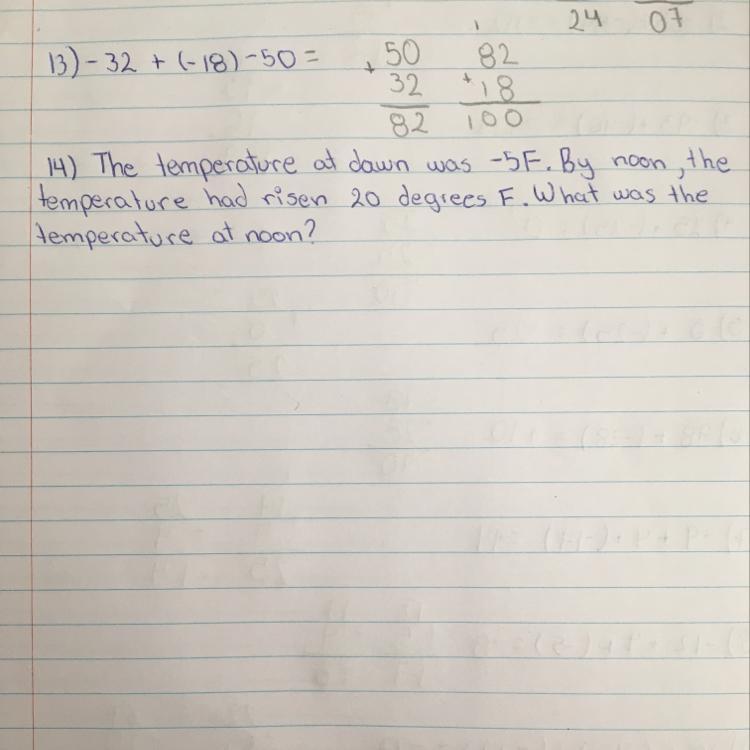 24 07
13) -32 + (-18) -50 = 50 1 82
+ 32 + 18
82 100
14) The temperature at dawn was -5F. By noon, the
temperature had risen 20 degrees F. What was the
temperature at noon?